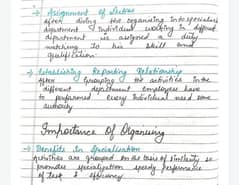 → Assignment of Duties
After doing the organising into specialised
department individual working in different
department is assigned a duty
matching to his skill and
qualification.
→ Establishing Reporting Relationship
After grouping the activities in the
different department employees have
to performed every individual need some
authority
Importance Of Organising
→ Benefits in Specialisation
Activities are grouped on the basis of similarity so
promotes specialisation speedy performance
of task & efficiency